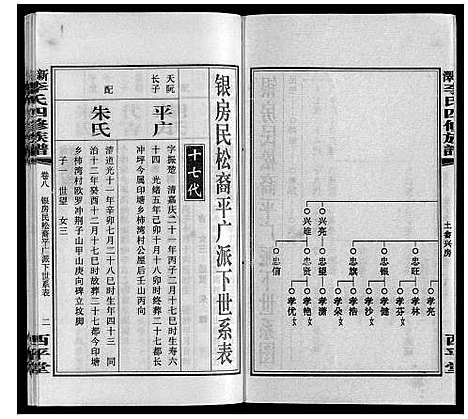 新漳李氏四修族谱
土斋兴房
兴亮
兴雄
忠旺
忠银
忠旗
忠望
忠贤
忠信
孝亮
孝林
孝芬
孝健
孝沙
孝浩
孝朵
孝艳
孝优
西平堂
银房民松裔平广派下世系表
十七代
天阮长子
平广
字振楚 清嘉庆二十一年丙子三月十七巳时生寿六
十四 光绪五年己卯十月十八卯时终葬二十七都长
冲坪今属印塘乡柿湾村公屋后壬山丙向
配
朱氏
清道光十一年辛卯七月二十八巳时生年四十三 同
治十二年癸酉十二月十七巳时故葬二十七都今印塘
乡柿湾村欧罗冲荆子山甲山庚向碑立坟脚
子一 世望 女三
新漳李氏四修族谱
卷八
银房民松裔平广派下世系表
二
西平堂